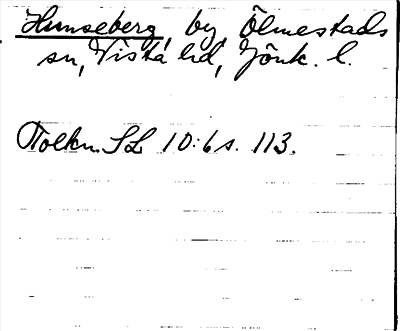 Hunseberg, by, Ölmestads
sn, Vista hd, Jönk. l.
Tolkn. SL 10:6 s. 113.